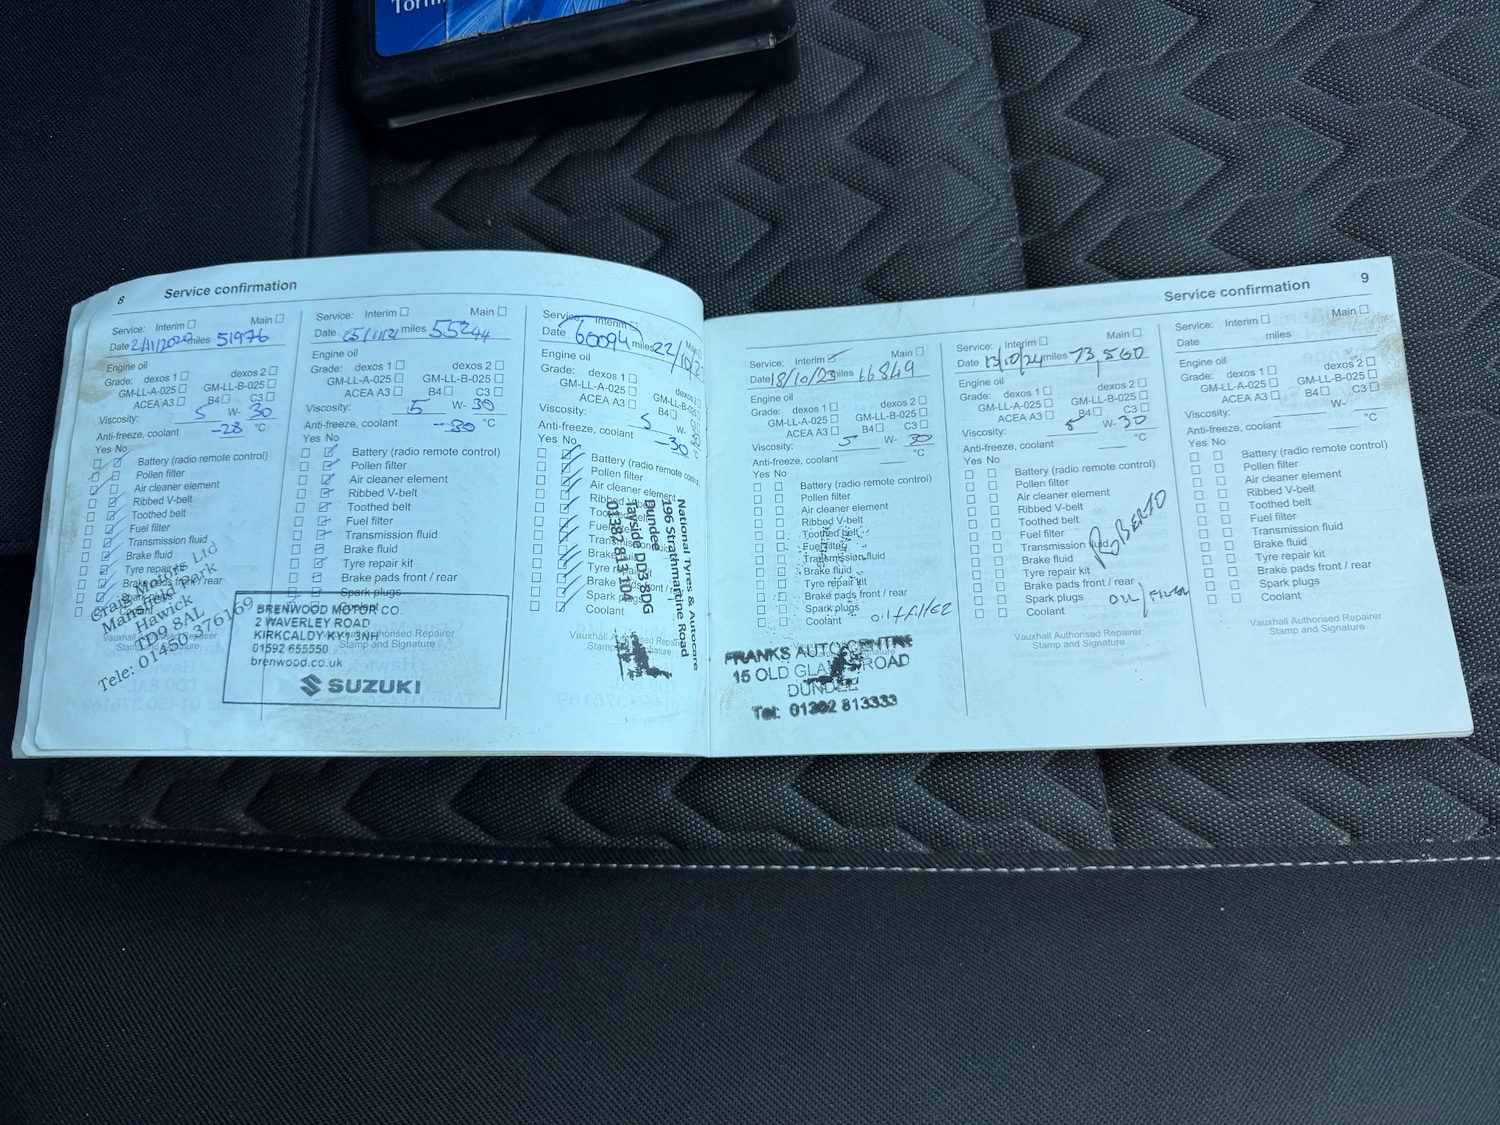 8
Service confirmation
Service: Interim Main
Date 2/11/2020 miles 51976
Engine oil
Grade: dexos 1 dexos 2
GM-LL-A-025 GM-LL-B-025
ACEA A3 B4 C3
Viscosity: 5 W- 30
Anti-freeze, coolant -28 °C
Yes No
Battery (radio remote control)
Pollen filter
Air cleaner element
Ribbed V-belt
Toothed belt
Fuel filter
Transmission fluid
Brake fluid
Tyre repair kit
Brake pads front / rear
Spark plugs
Coolant
Vauxhall Authorised Repairer
Stamp and Signature
Craig Motors Ltd
Mansfield Park
Hawick
TD9 8AL
Tele: 01450 376169
Service: Interim Main
Date miles 55244
Engine oil
Grade: dexos 1 dexos 2
GM-LL-A-025 GM-LL-B-025
ACEA A3 B4 C3
Viscosity: 5 W- 30
Anti-freeze, coolant -30 °C
Yes No
Battery (radio remote control)
Pollen filter
Air cleaner element
Ribbed V-belt
Toothed belt
Fuel filter
Transmission fluid
Brake fluid
Tyre repair kit
Brake pads front / rear
Spark plugs
Coolant
Vauxhall Authorised Repairer
Stamp and Signature
BRENWOOD MOTOR CO.
2 WAVERLEY ROAD
KIRKCALDY KY1 3NH
01592 655550
brenwood.co.uk
SUZUKI
Service: Interim Main
Date 60094 miles 22/10/
Engine oil
Grade: dexos 1
GM-LL-A-025 GM-LL-B-025
ACEA A3 B4
Viscosity: 5 W-
Anti-freeze, coolant -30 °C
Yes No
Battery (radio remote control)
Pollen filter
Air cleaner element
Ribbed V-belt
Toothed belt
Fuel filter
Transmission fluid
Brake fluid
Tyre repair kit
Brake pads front / rear
Spark plugs
Coolant
Vauxhall Authorised Repairer
Stamp and Signature
National Tyres & Autocare
196 Strathmartine Road
Dundee
Tayside DD3 8DG
01382 813 104
9
Service confirmation
Service: Interim Main
Date 18/10/23 miles 66849
Engine oil
Grade: dexos 1 dexos 2
GM-LL-A-025 GM-LL-B-025
ACEA A3 B4 C3
Viscosity: 5 W- 30
Anti-freeze, coolant °C
Yes No
Battery (radio remote control)
Pollen filter
Air cleaner element
Ribbed V-belt
Toothed belt
Fuel filter
Transmission fluid
Brake fluid
Tyre repair kit
Brake pads front / rear
Spark plugs
Coolant
Vauxhall Authorised Repairer
Stamp and Signature
FRANKS AUTOCENTRE
15 OLD ROAD
DUNDEE
Tel: 01382 813333
Service: Interim Main
Date 13/10/24 miles 73,560
Engine oil
Grade: dexos 1 dexos 2
GM-LL-A-025 GM-LL-B-025
ACEA A3 B4 C3
Viscosity: 5 W- 30
Anti-freeze, coolant °C
Yes No
Battery (radio remote control)
Pollen filter
Air cleaner element
Ribbed V-belt
Toothed belt
Fuel filter
Transmission fluid
Brake fluid
Tyre repair kit
Brake pads front / rear
Spark plugs
Coolant
ROBERTO
OIL/FILTER
Vauxhall Authorised Repairer
Stamp and Signature
Service: Interim Main
Date miles
Engine oil
Grade: dexos 1 dexos 2
GM-LL-A-025 GM-LL-B-025
ACEA A3 B4 C3
Viscosity: W-
Anti-freeze, coolant °C
Yes No
Battery (radio remote control)
Pollen filter
Air cleaner element
Ribbed V-belt
Toothed belt
Fuel filter
Transmission fluid
Brake fluid
Tyre repair kit
Brake pads front / rear
Spark plugs
Coolant
Vauxhall Authorised Repairer
Stamp and Signature